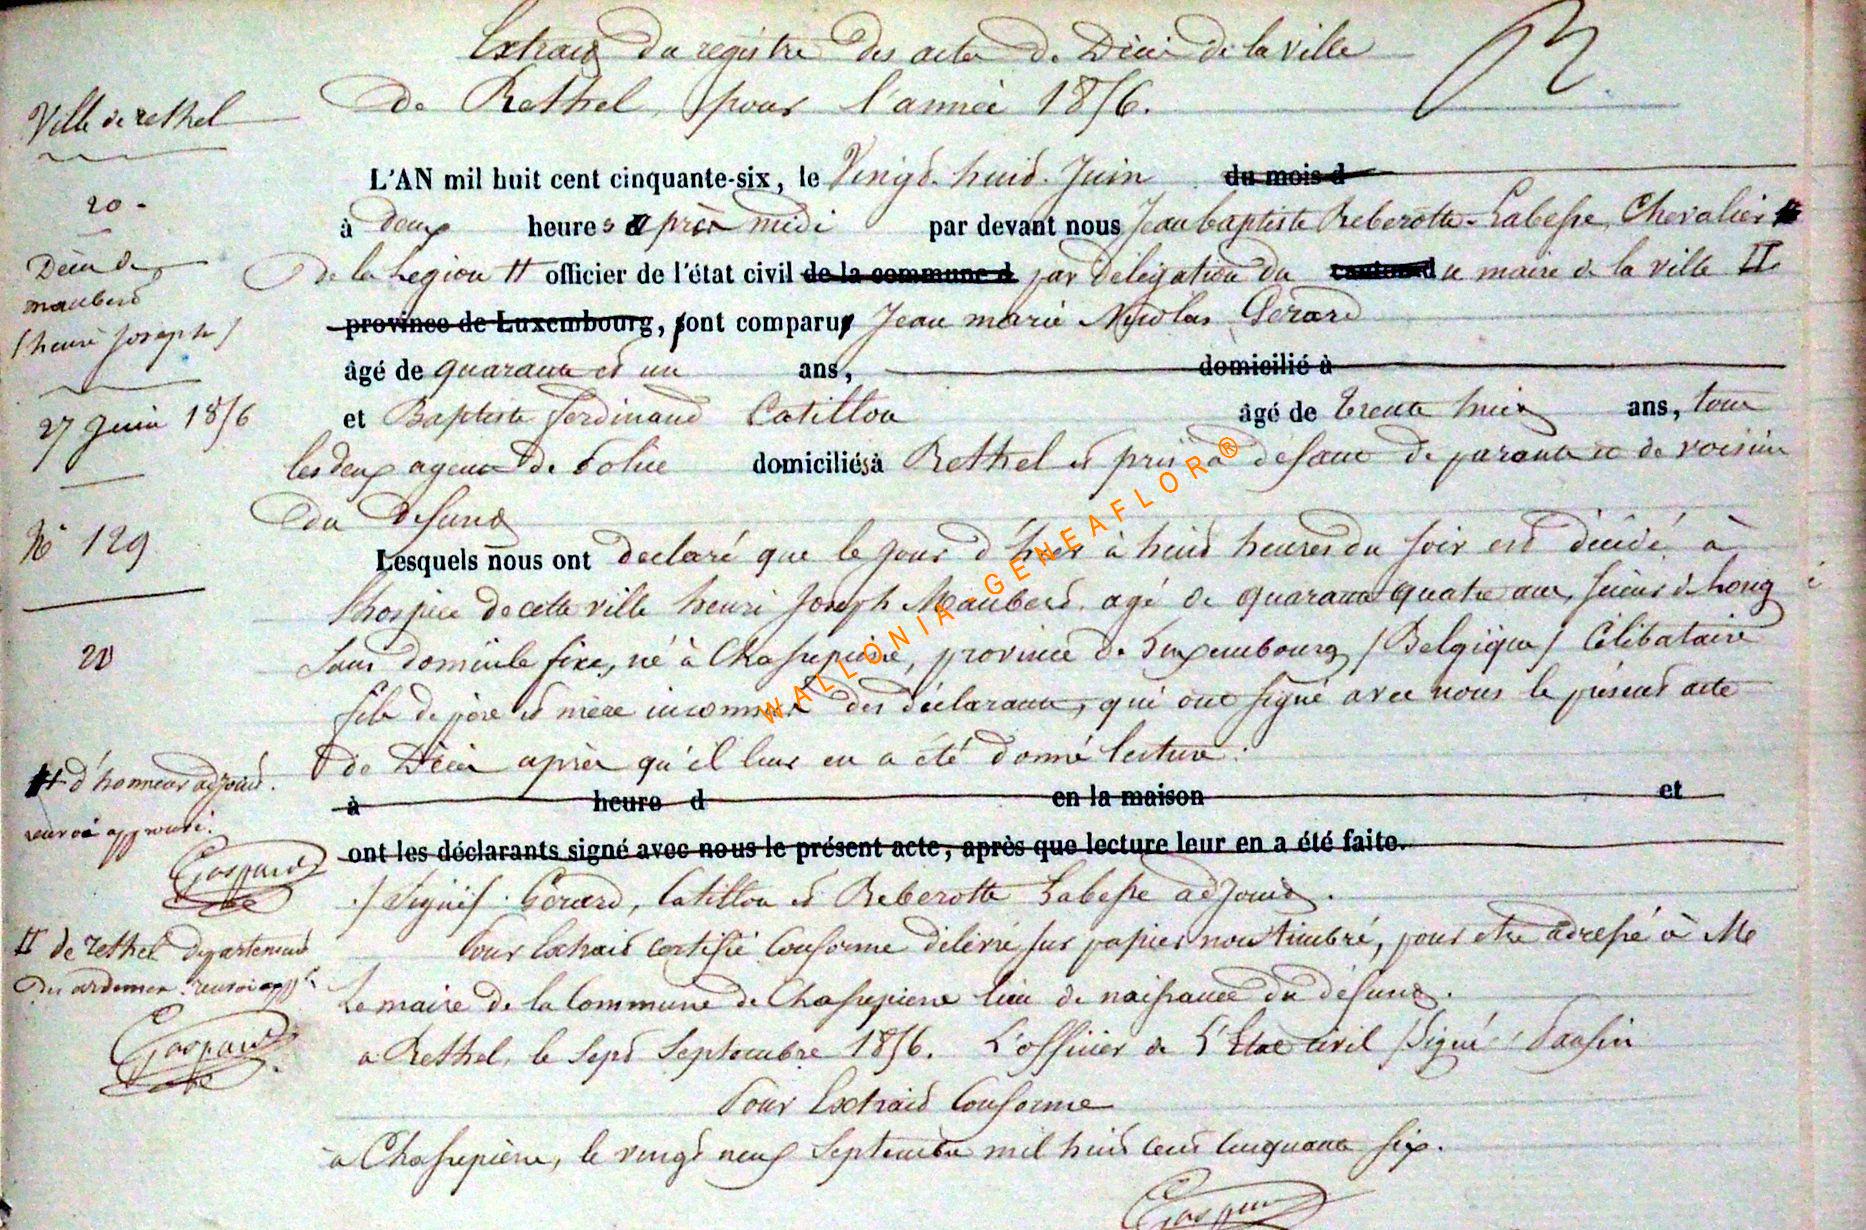 Extrait du registre des actes de Décès de la ville
de Rethel, pour l'année 1856.
Ville de rethel
20.
Décès de
maubert
(henri Joseph)
27 Juin 1856
N° 129
20
L'AN mil huit cent cinquante-six, le Vingt-huit Juin du mois d
à deux heures après midi par devant nous Jean baptiste Reberotte-Labesse, Chevalier
de la Légion # officier de l'état civil de la commune d par délégation du canton d u maire de la ville II
province de Luxembourg, sont comparus Jean marie Nicolas Gérard
âgé de quarante et un ans, domicilié à
et Baptiste ferdinand Catillon âgé de trente huit ans, tous
les deux agents de Police domiciliés à Rethel et pris à défaut de parents et de voisins
du défunt
Lesquels nous ont déclaré que le jour d'hier à huit heures du soir est décédé à
l'hospice de cette ville henri Joseph Maubert, agé de quarante quatre ans, scieur de long
sans domicile fixe, né à Chassepierre, province de Luxembourg (Belgique) Célibataire
fils de père et mère inconnus des déclarants, qui ont signé avec nous le présent acte
de Décès après qu'il leur en a été donné lecture.
à heure d en la maison et
ont les déclarants signé avec nous le présent acte, après que lecture leur en a été faite.
# d'honneur adjoint.
renvoi approuvé.
Gaspard
(Signé) Gérard, Catillon et Reberotte Labesse adjoint.
II de rethel département
des ardennes. renvoi app.é
Gaspard
Pour Extrait certifié Conforme délivré sur papier non timbré, pour être adressé à Mr
Le maire de la Commune de Chassepierre lieu de naissance du défunt.
a Rethel, le Sept Septembre 1856. L'officier de l'Etat civil (Signé)
Pour Extrait Conforme
a Chassepierre, le vingt neuf Septembre mil huit cent cinquante six.
Gaspard
WALLONIA-GENEAFLOR®